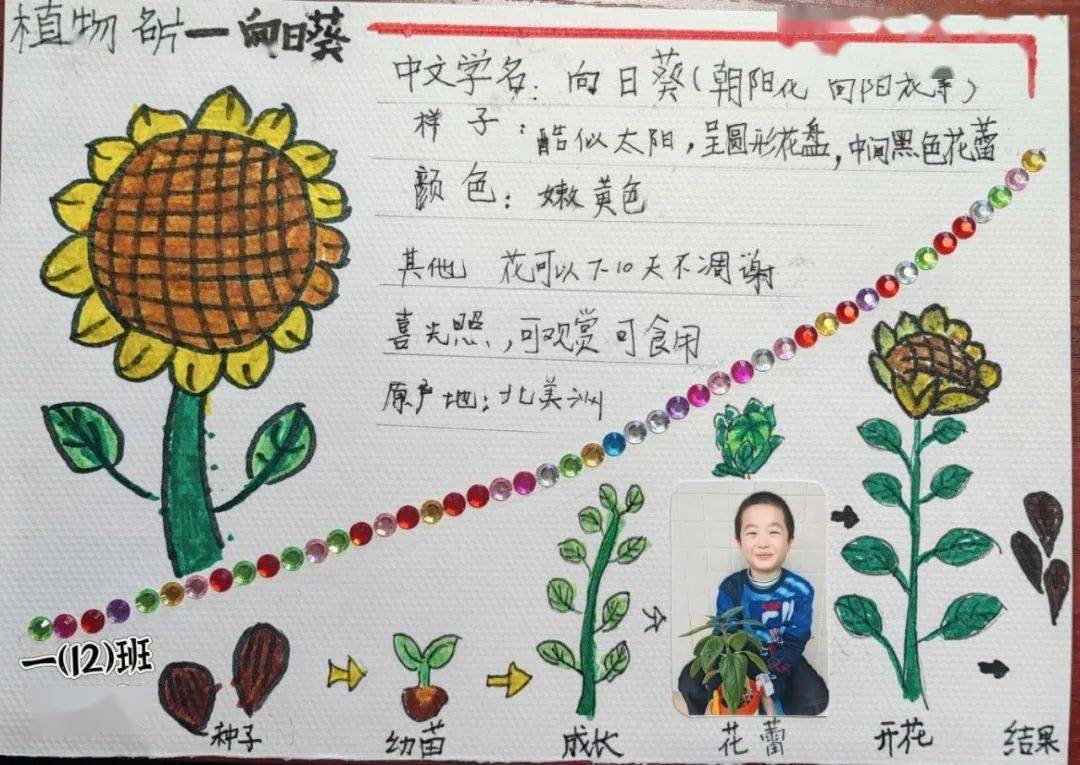 植物名片—向日葵
中文学名：向日葵（朝阳花 向阳花等）
样子：酷似太阳，呈圆形花盘，中间黑色花蕾
颜色：嫩黄色
其他 花可以7-10天不凋谢
喜光照，可观赏可食用
原产地：北美洲
一(12)班
种子
幼苗
成长
花蕾
开花
结果
FILA